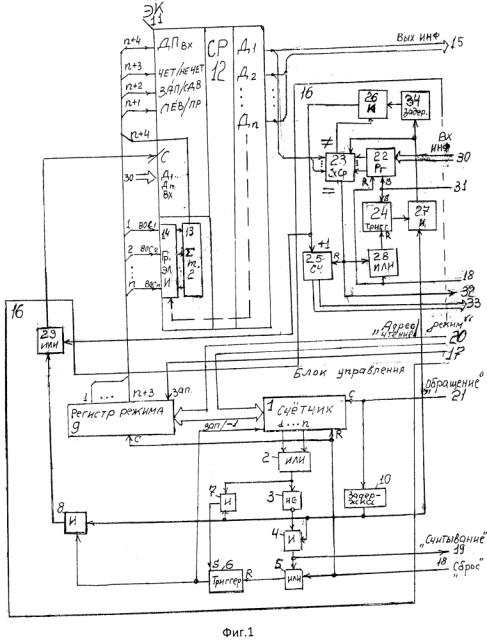 ЭК
11
n+4
ДП вх
n+3
ЧЕТ/НЕЧЕТ
n+2
ЗАП/СДВ
n+1
ЛЕВ/ПР
n+4
СР
12
Д1
Д2
Дn
ВЫХ ИНФ
15
16
26
И
34
Задер.
≠
23
=
22
Рг
R
В
Вх
ИНФ
30
31
24
Тригг.
R
27
И
C
30
Д1
Дn
Вх
1
2
n
14
Гр.
ЭЛ
И
13
Σ
m.2
+1
25
СЧ
R
28
ИЛИ
18
32
33
16
29
ИЛИ
"Адрес
Чтение"
"режим"
20
17
Блок управления
1
n+3
Зап.
Регистр режима
9
C
зап/-1
1
Счётчик
1 . . . n
C
R
"Обращение"
21
2
ИЛИ
7
И
3
НЕ
10
Задер-
жка
8
И
4
И
"Считывание"
19
18
"Сброс"
5,6
Триггер
R
5
ИЛИ
Фиг.1